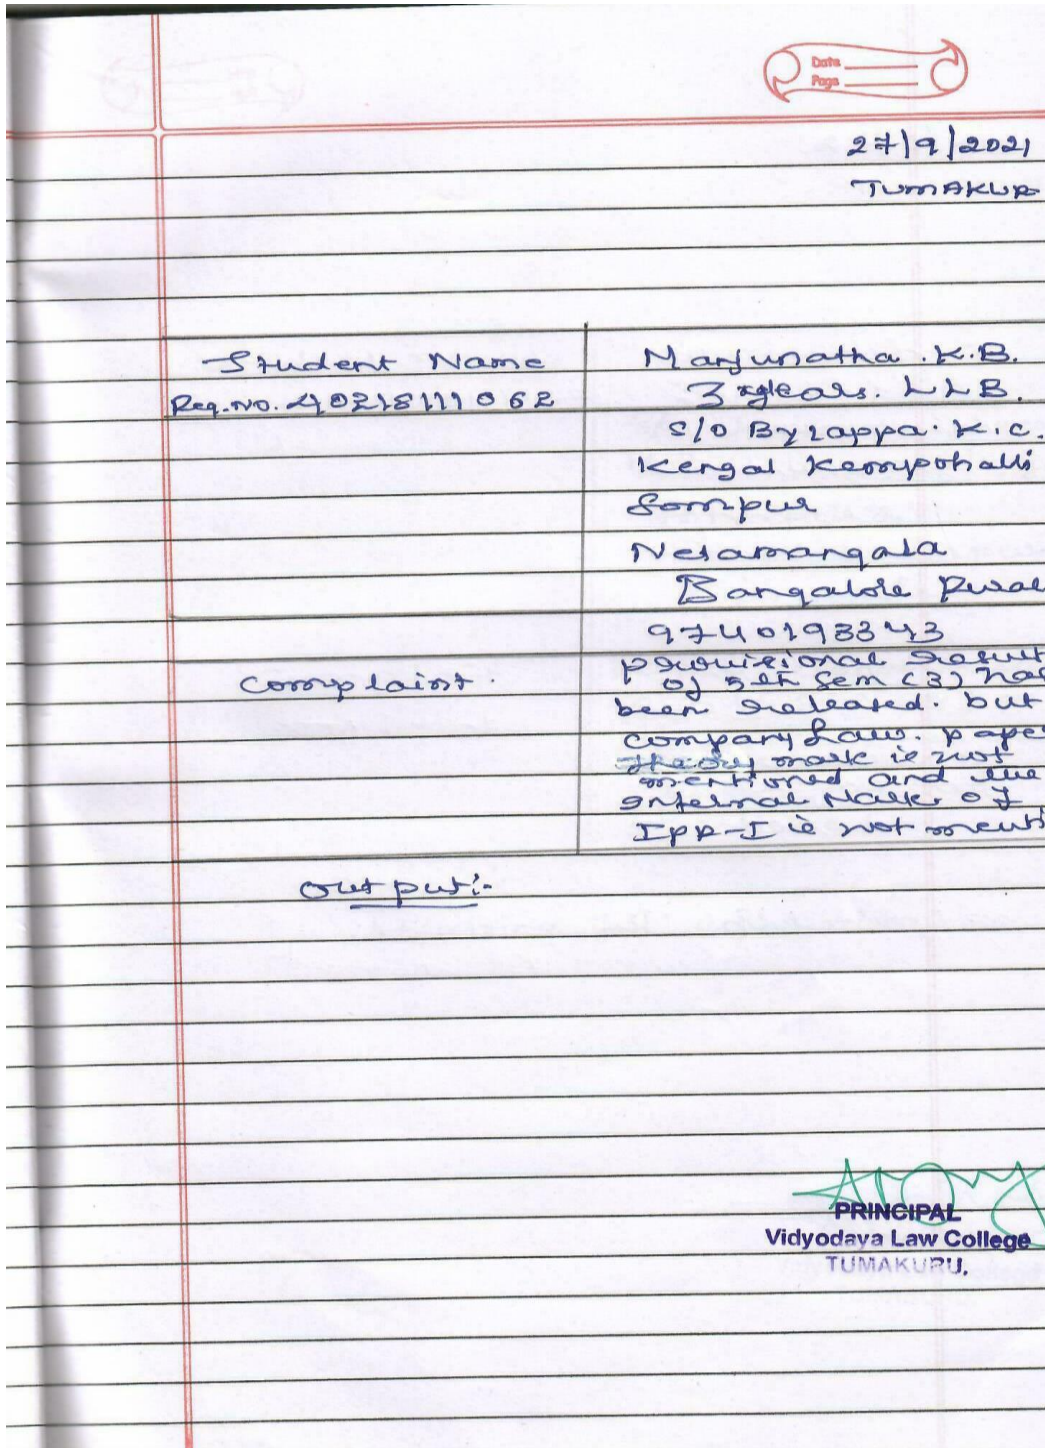 Date
Page
27/9/2021
TUMAKUR
Student Name
Manjunatha . K.B.
Reg.No. 40218111062
3 years. LLB.
S/O Byrappa. K.C.
Kengal Kempohalli
Sompur
Nelamangala
Bangalore Rural
9740193343
Complaint.
provisional result
of 5th Sem (3) has
been released. but
company Law. pape
theory mark is not
mentioned and the
Internal Mark of
IPR-I is not menti
Output:-
PRINCIPAL
Vidyodaya Law College
TUMAKURU.